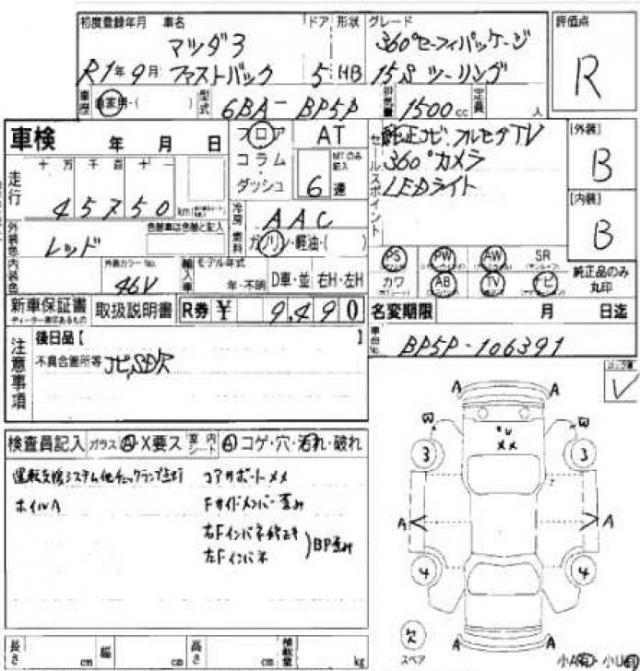 初度登録年月 車名 ドア 形状 グレード 評価点
マツダ3 360°セーフィパッケージ
R1年9月 ファストバック 5 HB 15S ツーリング R
車歴 自家用・( ) 型式 6BA-BP5P 排気量 1500cc 定員 人
車検 年 月 日 フロア AT セールスポイント 純正ナビ フルセグTV [外装]
コラム・ MTのみ記入 360°カメラ B
走行 十 万 千 百 十 一 ダッシュ 6速 LEDライト
45750 km 冷房 AAC [内装]
外装色 レッド 色替車は色替と記入 燃料 ガソリン・軽油・( ) B
PS PW AW SR
内装色 外装カラーNo. 46V 輸入車 モデル年式 年・不明 D車・並 右H・左H カワ AB TV ナビ 純正品のみ丸印
新車保証書 取扱説明書 R券 ¥ 9,490 名変期限 月 日迄
ディーラー捺印あるもの
注意事項 後日品【 】 車台No. BP5P-106391
不具合箇所等 ナビSD欠
検査員記入 ガラス Ⓐ・X要ス 室内シート Ⓐコゲ・穴・汚れ・破れ
運転支援システム他チェックランプ点灯 コアサポートメメ
ホイルA Fサイドメンバー歪み
右Fインパネ修正キ
左Fインパネ BP歪み
A A
W W
3 3
XX
A A
4 4
欠
スペア
A A
長さ cm 幅 cm 高さ cm 積載量 kg